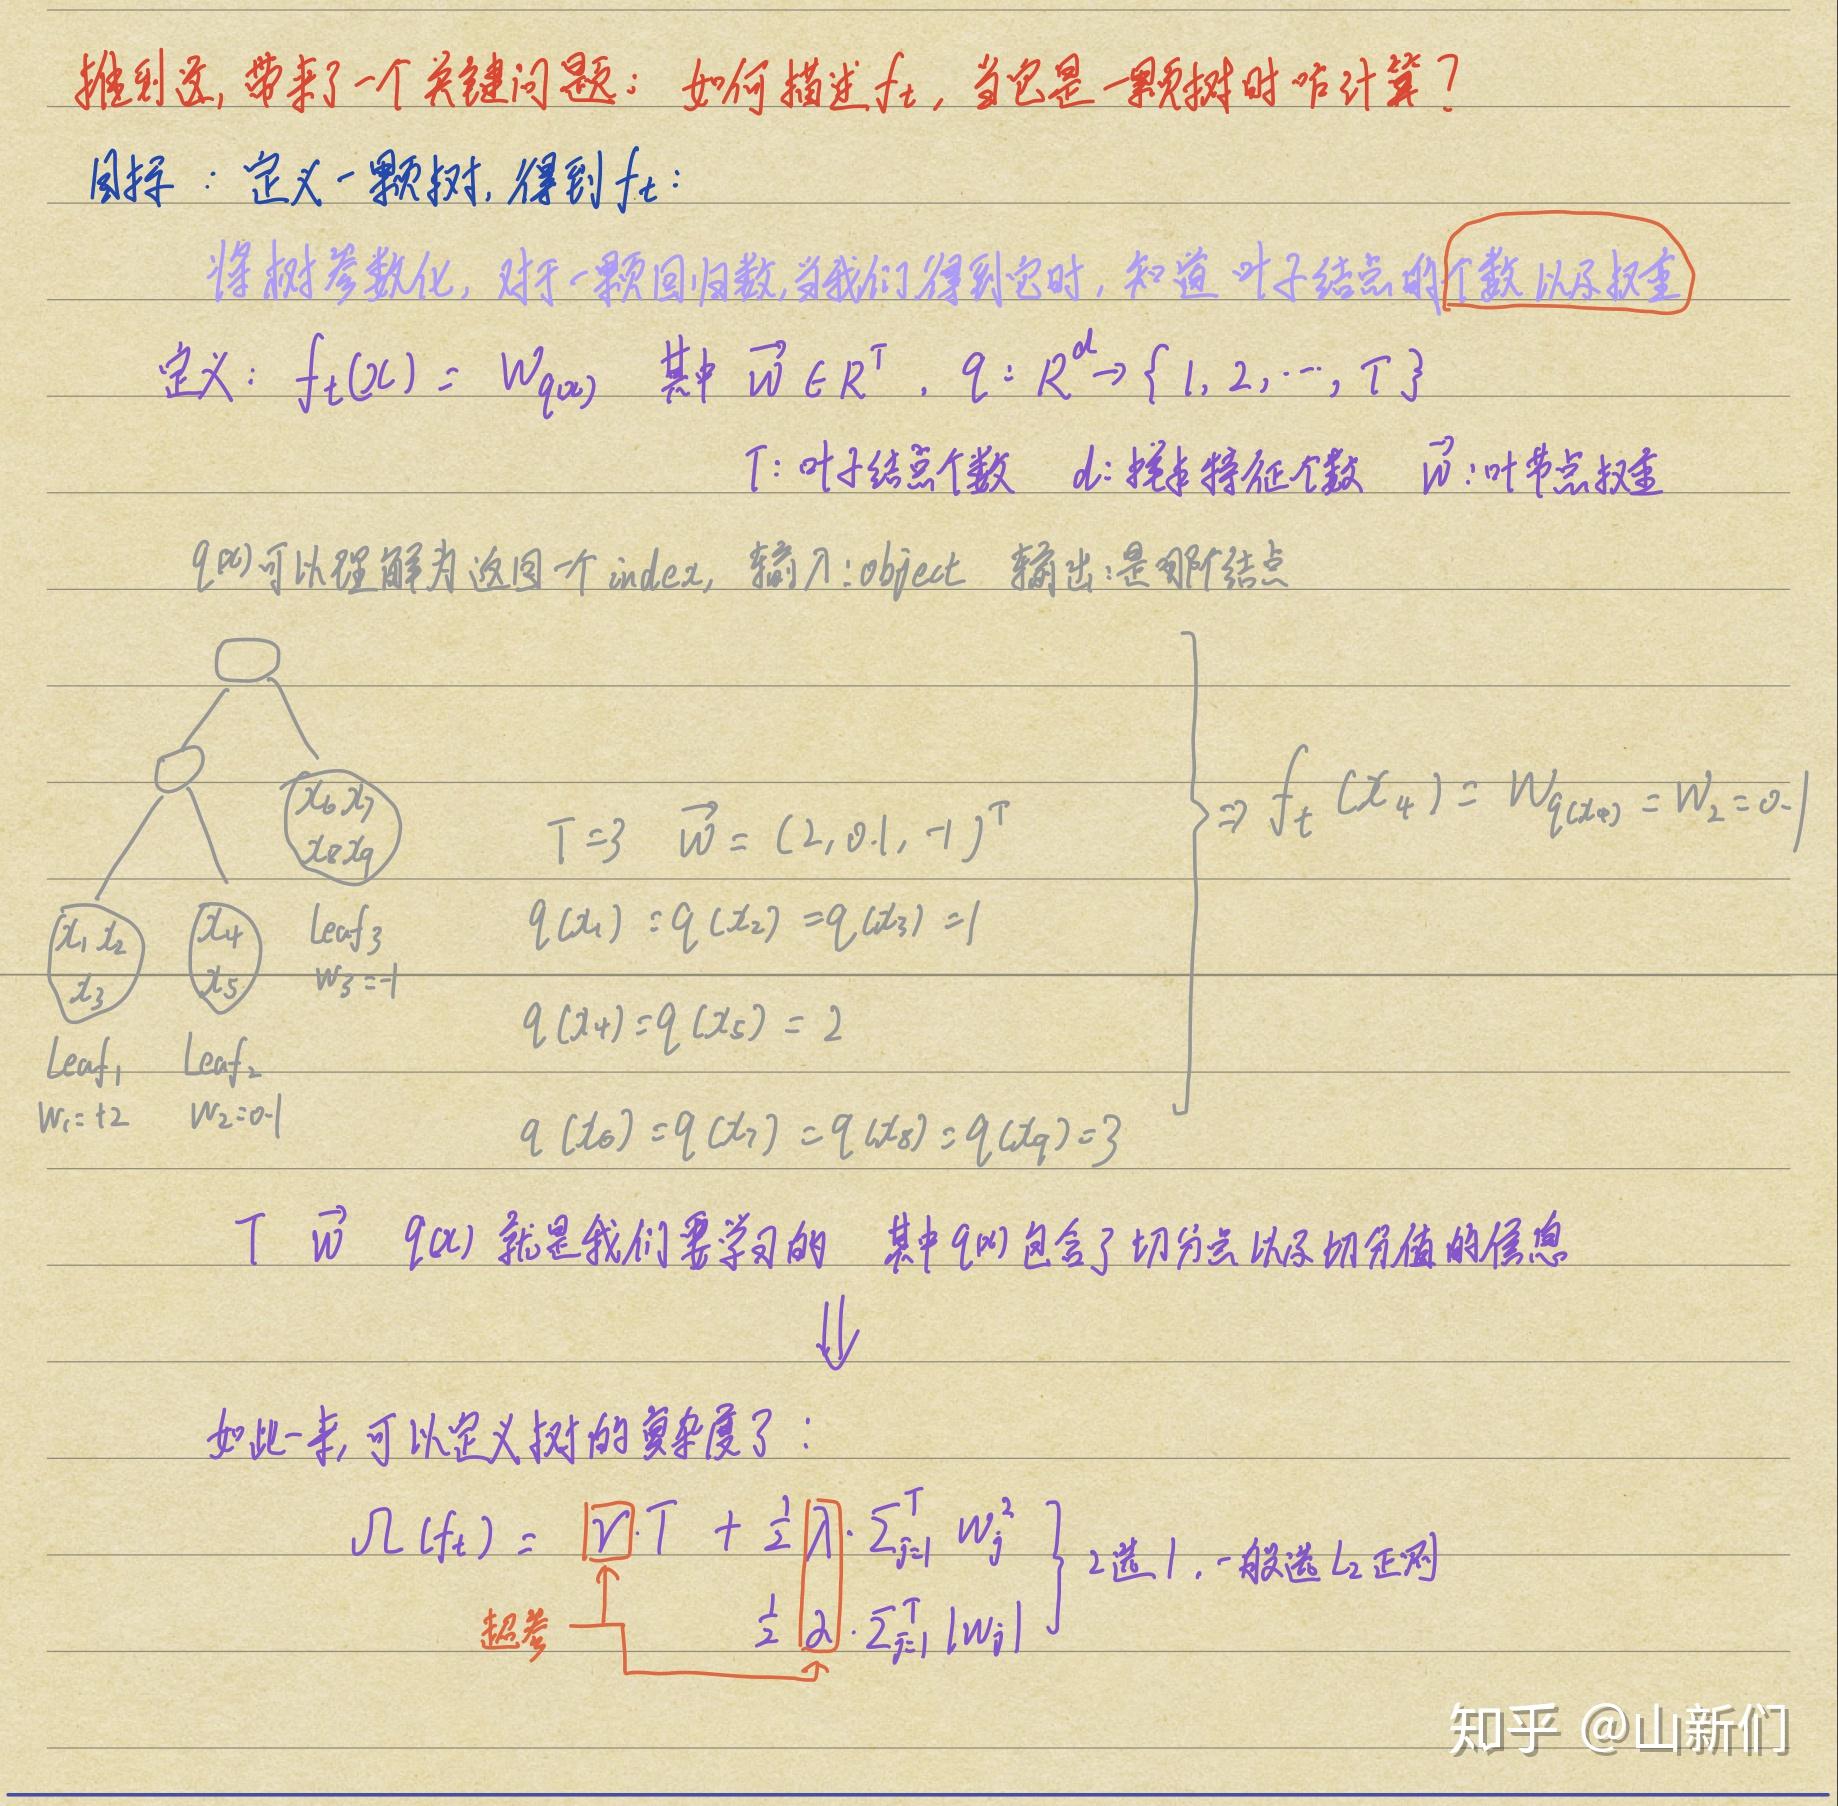 推到这，带来了一个关键问题：如何描述 f_t，当它是一颗树时咋计算？
目标：定义一颗树，得到 f_t：
将树参数化，对于一颗回归数，当我们得到它时，知道叶子结点的个数以及权重
定义：f_t(x) = W_{q(x)} 其中 \vec{w} ∈ R^T，q：R^d → {1, 2, ⋯, T}
T：叶子结点个数 d：样本特征个数 \vec{w}：叶节点权重
q(x)可以理解为返回一个index，输入：object 输出：是哪个结点
x_6 x_7
x_8 x_9
T=3 \vec{w} = (2, 0.1, -1)^T
⇒ f_t(x_4) = W_{q(x_4)} = W_2 = 0.1
x_1 x_2
x_3
x_4
x_5
Leaf_3
w_3=-1
q(x_1) = q(x_2) = q(x_3) = 1
q(x_4) = q(x_5) = 2
Leaf_1
Leaf_2
w_1=+2
w_2=0.1
q(x_6) = q(x_7) = q(x_8) = q(x_9) = 3
T \vec{w} q(x) 就是我们要学习的 其中q(x)包含了切分点以及切分值的信息
⇓
如此一来，可以定义树的复杂度了：
Ω(f_t) = γ·T + \frac{1}{2}λ·Σ_{j=1}^T w_j^2
2选1，一般选L_2正则
超参
\frac{1}{2} λ·Σ_{j=1}^T |w_j|
知乎 @山新们